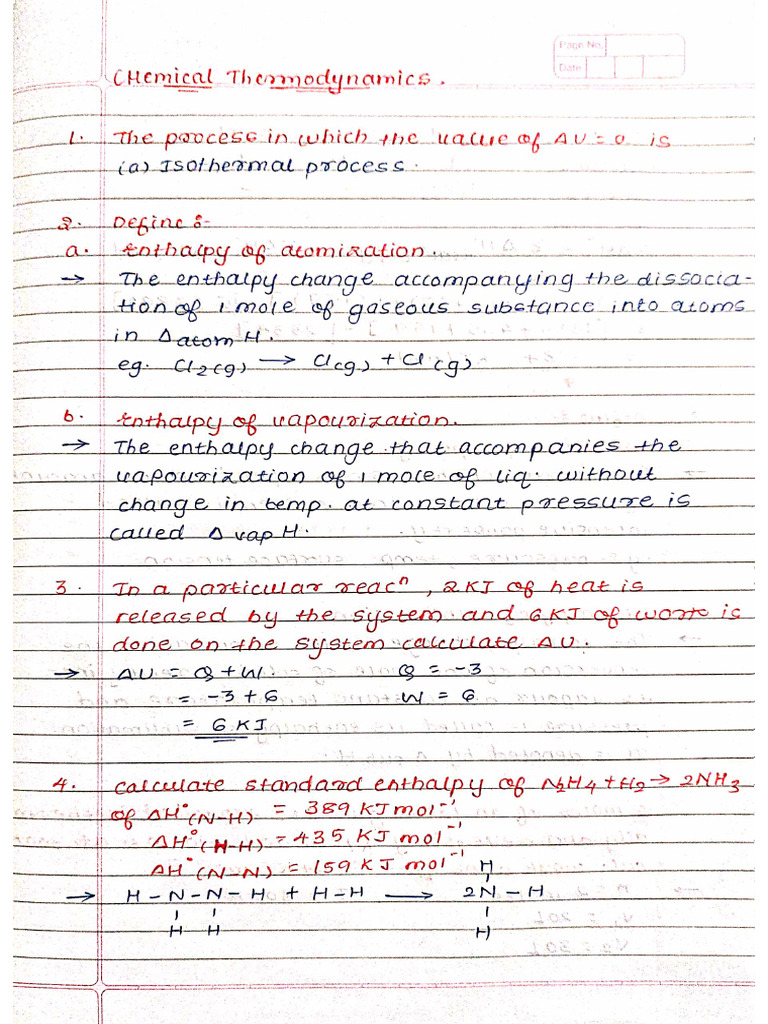 Page No.
Date
CHemical Thermodynamics.
1. The process in which the value of ΔU = 0 is
(a) Isothermal process.
2. Define :-
a. Enthalpy of atomization.
→ The enthalpy change accompanying the dissocia-
tion of 1 mole of gaseous substance into atoms
in Δatom H.
eg. Cl2(g) → Cl(g) + Cl(g)
b. Enthalpy of vapourization.
→ The enthalpy change that accompanies the
vapourization of 1 mole of liq. without
change in temp. at constant pressure is
called Δ vap H.
3. In a particular reacⁿ, 2KJ of heat is
released by the system and 6KJ of work is
done on the system calculate ΔU.
→ ΔU = Q + W. Q = -3
= -3 + 6 W = 6
= 6 KJ
4. calculate standard enthalpy of N2H4 + H2 → 2NH3
of ΔH°(N-H) = 389 KJ mol⁻¹
ΔH°(H-H) = 435 KJ mol⁻¹
ΔH°(N-N) = 159 KJ mol⁻¹
H
→ H - N - N - H + H - H → 2N - H
H H H